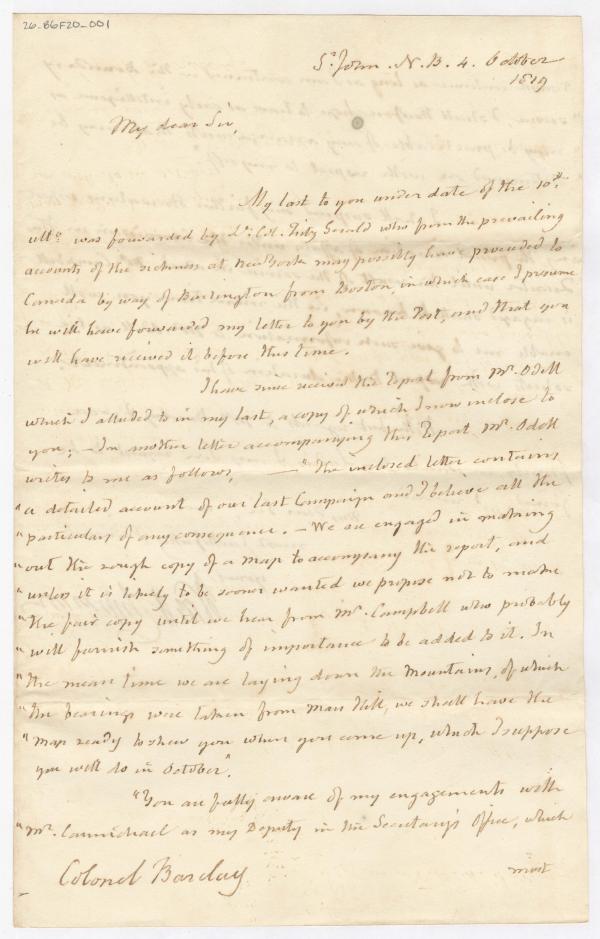 26-B6F20-001
St. John. N.B. 4. October
1819
My dear Sir,
My last to you under date of the 10th.
ulto. was forwarded by Lt. Col. Fitz Gerald who from the prevailing
accounts of the sickness at New York may possibly have proceeded to
Canada by way of Burlington from Boston in which case I presume
he will have forwarded my letter to you by the Post, and that you
will have received it before this time.
I have since received the Report from Mr. Odell
which I alluded to in my last, a copy of which I now inclose to
you; — In another letter accompanying this Report Mr. Odell
writes to me as follows, — "The inclosed letter contains
"a detailed account of our last Campaign and I believe all the
"particulars of any consequence. — We are engaged in making
"out the rough copy of a map to accompany the report, and
"unless it is likely to be sooner wanted we propose not to make
"the fair copy until we hear from Mr. Campbell who probably
"will furnish something of importance to be added to it. In
"the mean time we are laying down the Mountains, of which
"the bearings were taken from Mars Hill, we shall have the
"map ready to shew you when you come up, which I suppose
you will do in October".
"You are fully aware of my engagements with
"Mr. Carmichael as my Deputy in the Secretary's Office, which
Colonel Barclay
most